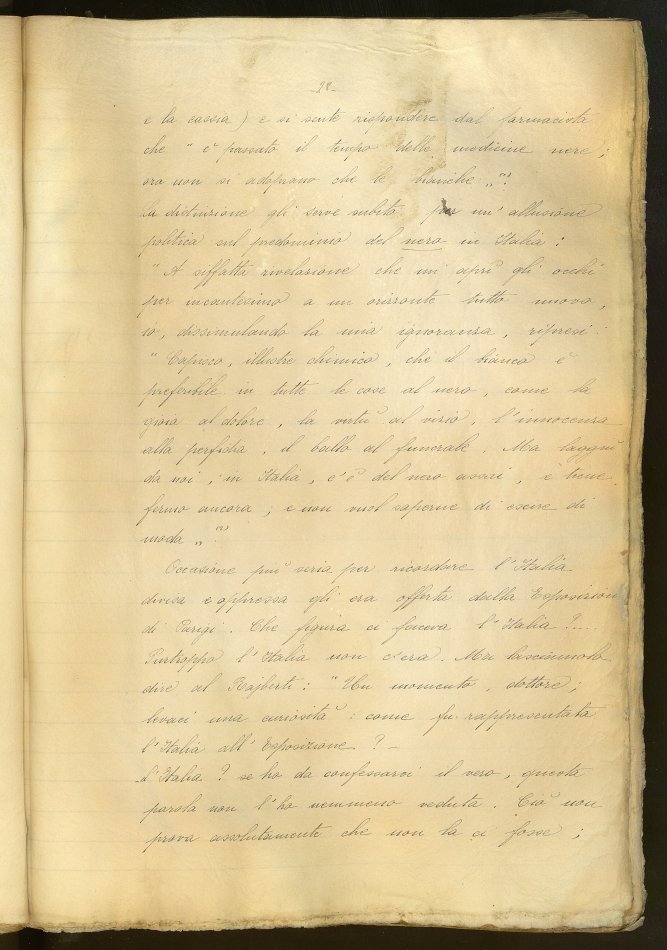 -28-
e la cassia) e si sente rispondere dal farmacista
che "è passato il tempo delle medicine nere;
ora non si adoprano che le bianche„ (1).
La distinzione gli serve subito per un'allusione
politica sul predominio del nero in Italia:
"A siffatta rivelazione che mi aprì gli occhi
per incantesimo a un orizzonte tutto nuovo,
io, dissimulando la mia ignoranza, ripresi:
"Capisco, illustre chimico, che il bianco è
preferibile in tutte le cose al nero, come la
gioia al dolore, la virtù al vizio, l'innocenza
alla perfidia, il ballo al funerale. Ma laggiù
da noi, in Italia, c'è del nero assai, e tiene
fermo ancora; e non vuol saperne di essere di
moda„ (2).
Occasione più seria per ricordare l'Italia
divisa e oppressa gli era offerta dalla Esposizion
di Parigi. Che figura ci faceva l'Italia?....
Purtroppo l'Italia non c'era. Ma lasciamolo
dire al Rajberti: "Un momento, dottore;
levaci una curiosità: come fu rappresentata
l'Italia all'Esposizione? -
L'Italia? se ho da confessarvi il vero, questa
parola non l'ho nemmeno veduta. Ciò non
prova assolutamente che non la ci fosse;